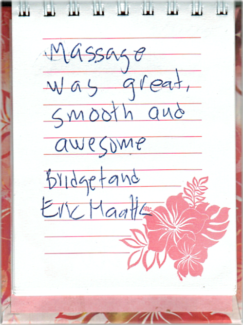 Massage
was great,
smooth and
awesome
Bridget and
Eric